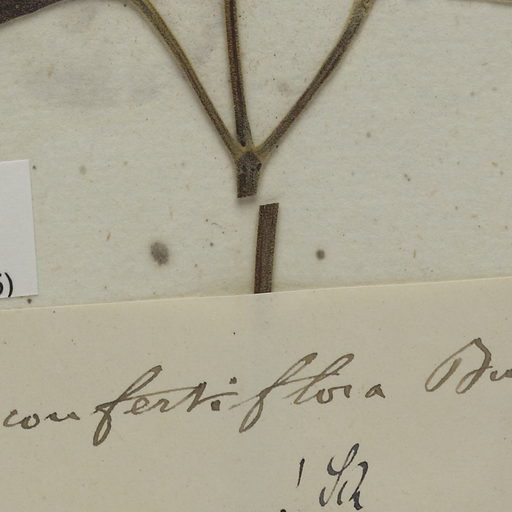 5)
confertiflora Bu
! Sch